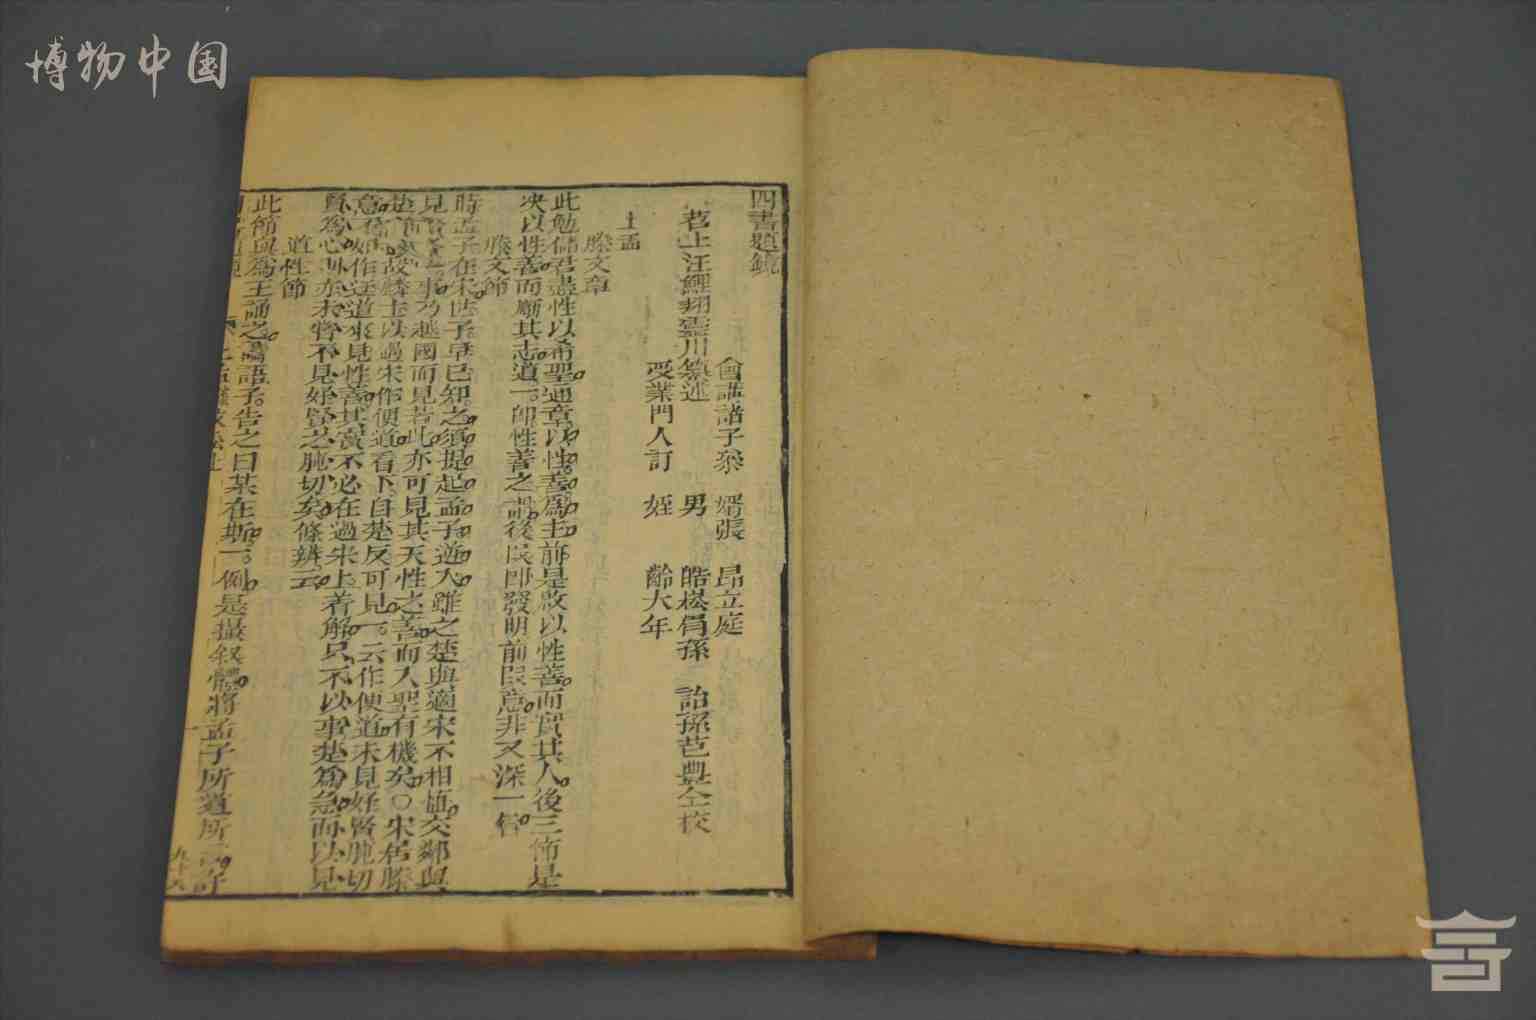 博物中国
四書題鏡
會講諸子叅 婿張 昂立庭
苕上汪鯉翔雲川纂述 男 皓崧 孫 詒孫芑豐仝校
受業門人訂 姪 齡大年
上孟
滕文章
此勉儲君盡性以希聖通章以性善爲主前是啟以性善而實其人後三節是
決以性善而勵其志道一卽性善之 後 卽發明前 意非又深一
滕文節
時孟子在宋世子早已知之須提起孟子遊人雖之楚與適宋不相值交鄰與
見賢 事乃越國而見若此亦可見其天性之善而入聖有機矣〇宋居滕
楚 故滕主以過宋作便道看下自楚反可見一云作便道未見好賢肫切
意 作迂道來見性善其實不必在過宋上着解只不以事楚爲急而以見
賢爲心 亦未嘗不見好賢之肫切矣條辨云
道性節
此節與爲王誦之 語子告之曰某在斯一例是撮叙體將孟子所道所
九十六